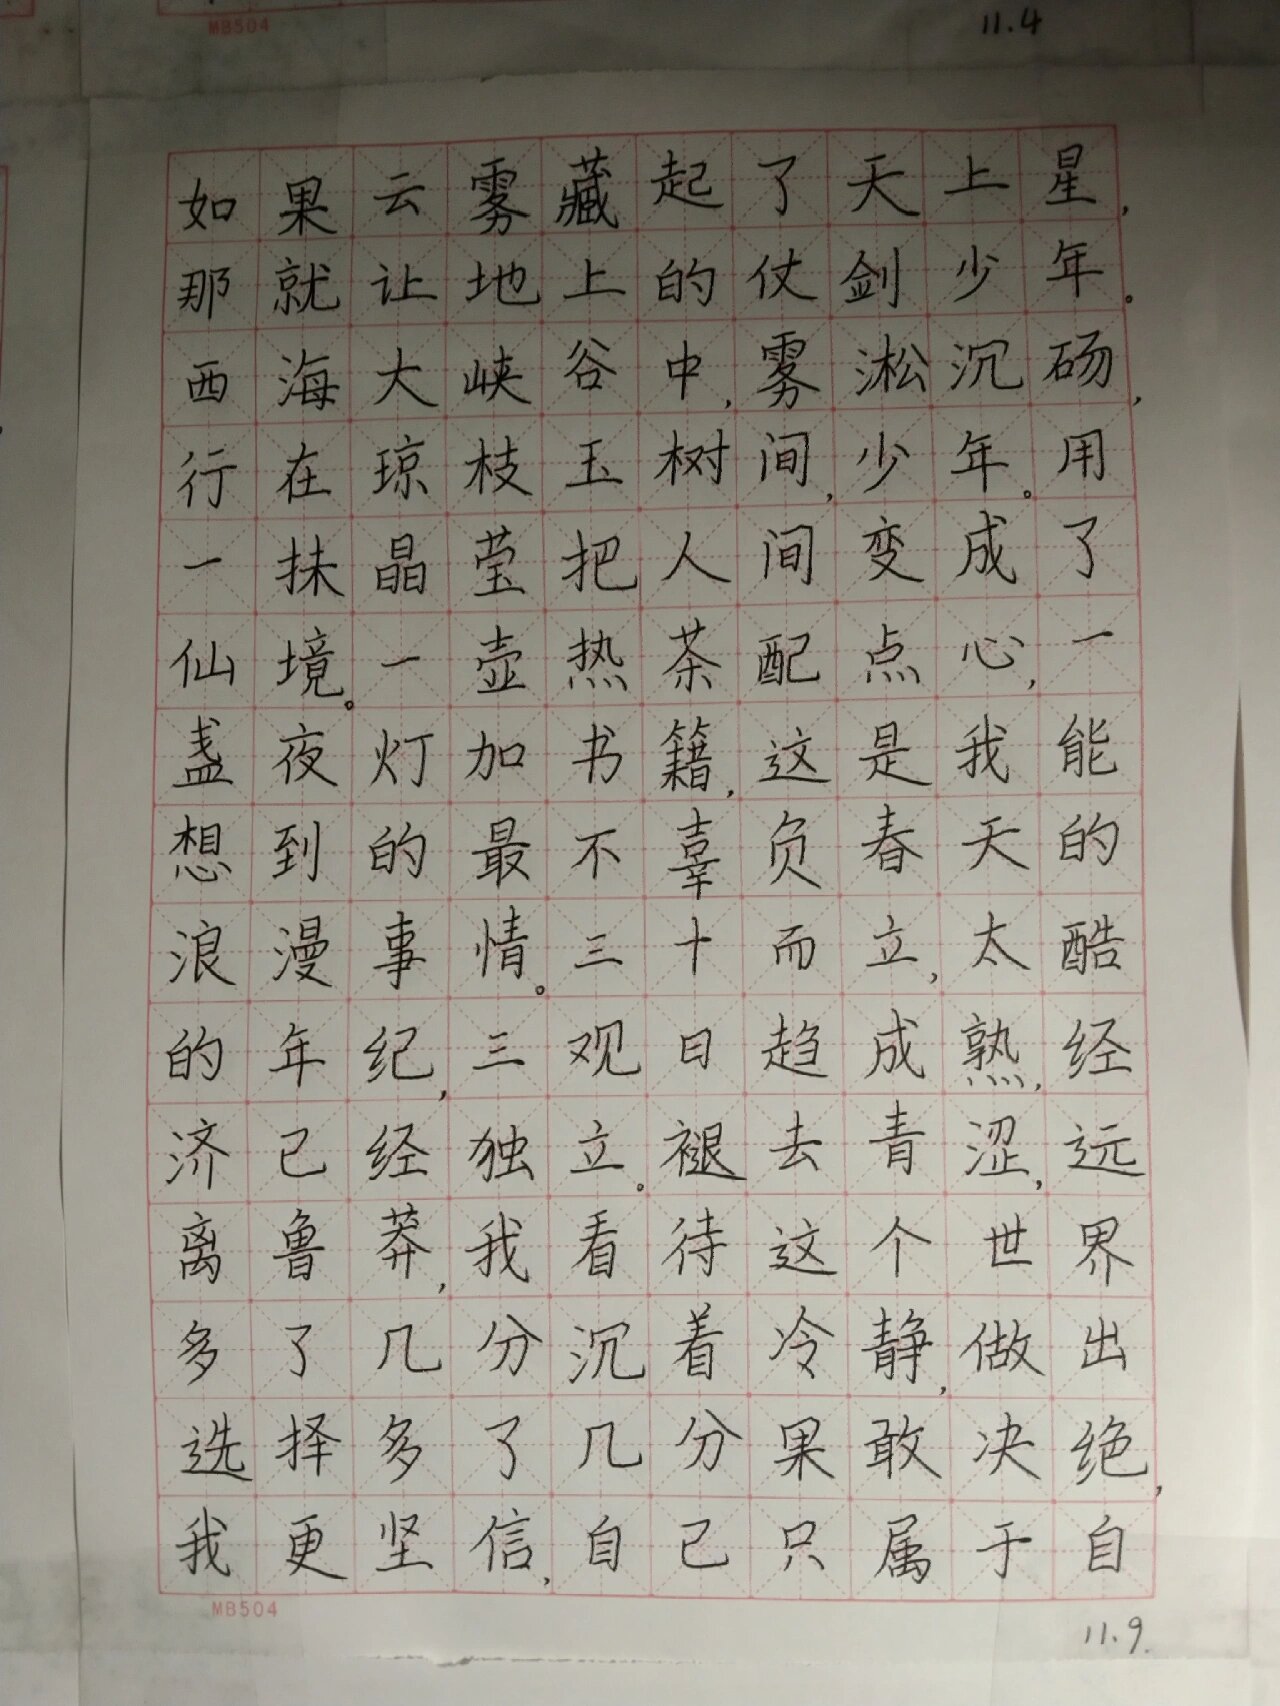 MB504
11.4
如果云雾藏起了天上星,
那就让地上的仗剑少年。
西海大峡谷中,雾淞沉砀,
行在琼枝玉树间,少年。用
一抹晶莹把人间变成了
仙境。一壶热茶配点心,一
盏夜灯加书籍,这是我能
想到的最不辜负春天的
浪漫事情。三十而立,太酷
的年纪,三观日趋成熟,经
济已经独立。褪去青涩,远
离鲁莽,我看待这个世界
多了几分沉着冷静,做出
选择多了几分果敢决绝,
我更坚信,自己只属于自
MB504
11.9